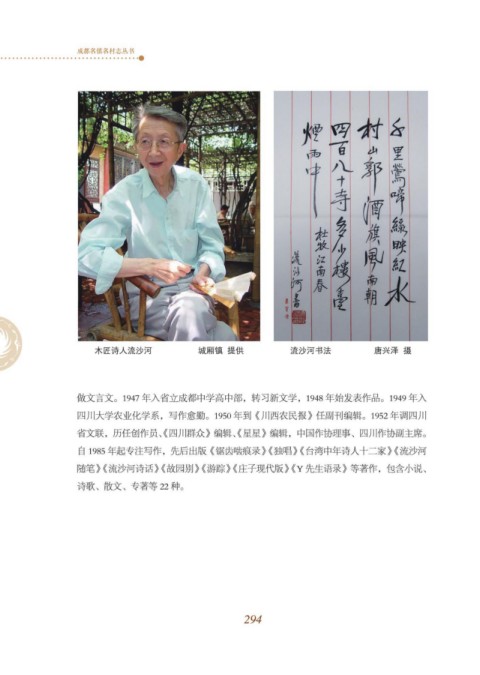 成都名镇名村志丛书
千里莺啼绿映红水
村山郭酒旗风南朝
四百八十寺多少楼台
烟雨中
杜牧江南春
流沙河书
木匠诗人流沙河 城厢镇 提供 流沙河书法 唐兴泽 摄
做文言文。1947 年入省立成都中学高中部，转习新文学，1948 年始发表作品。1949 年入
四川大学农业化学系，写作愈勤。1950 年到《川西农民报》任周刊编辑。1952 年调四川
省文联，历任创作员、《四川群众》编辑、《星星》编辑，中国作协理事、四川作协副主席。
自 1985 年起专注写作，先后出版《锯齿啮痕录》《独唱》《台湾中年诗人十二家》《流沙河
随笔》《流沙河诗话》《故园别》《游踪》《庄子现代版》《Y 先生语录》等著作，包含小说、
诗歌、散文、专著等 22 种。
294